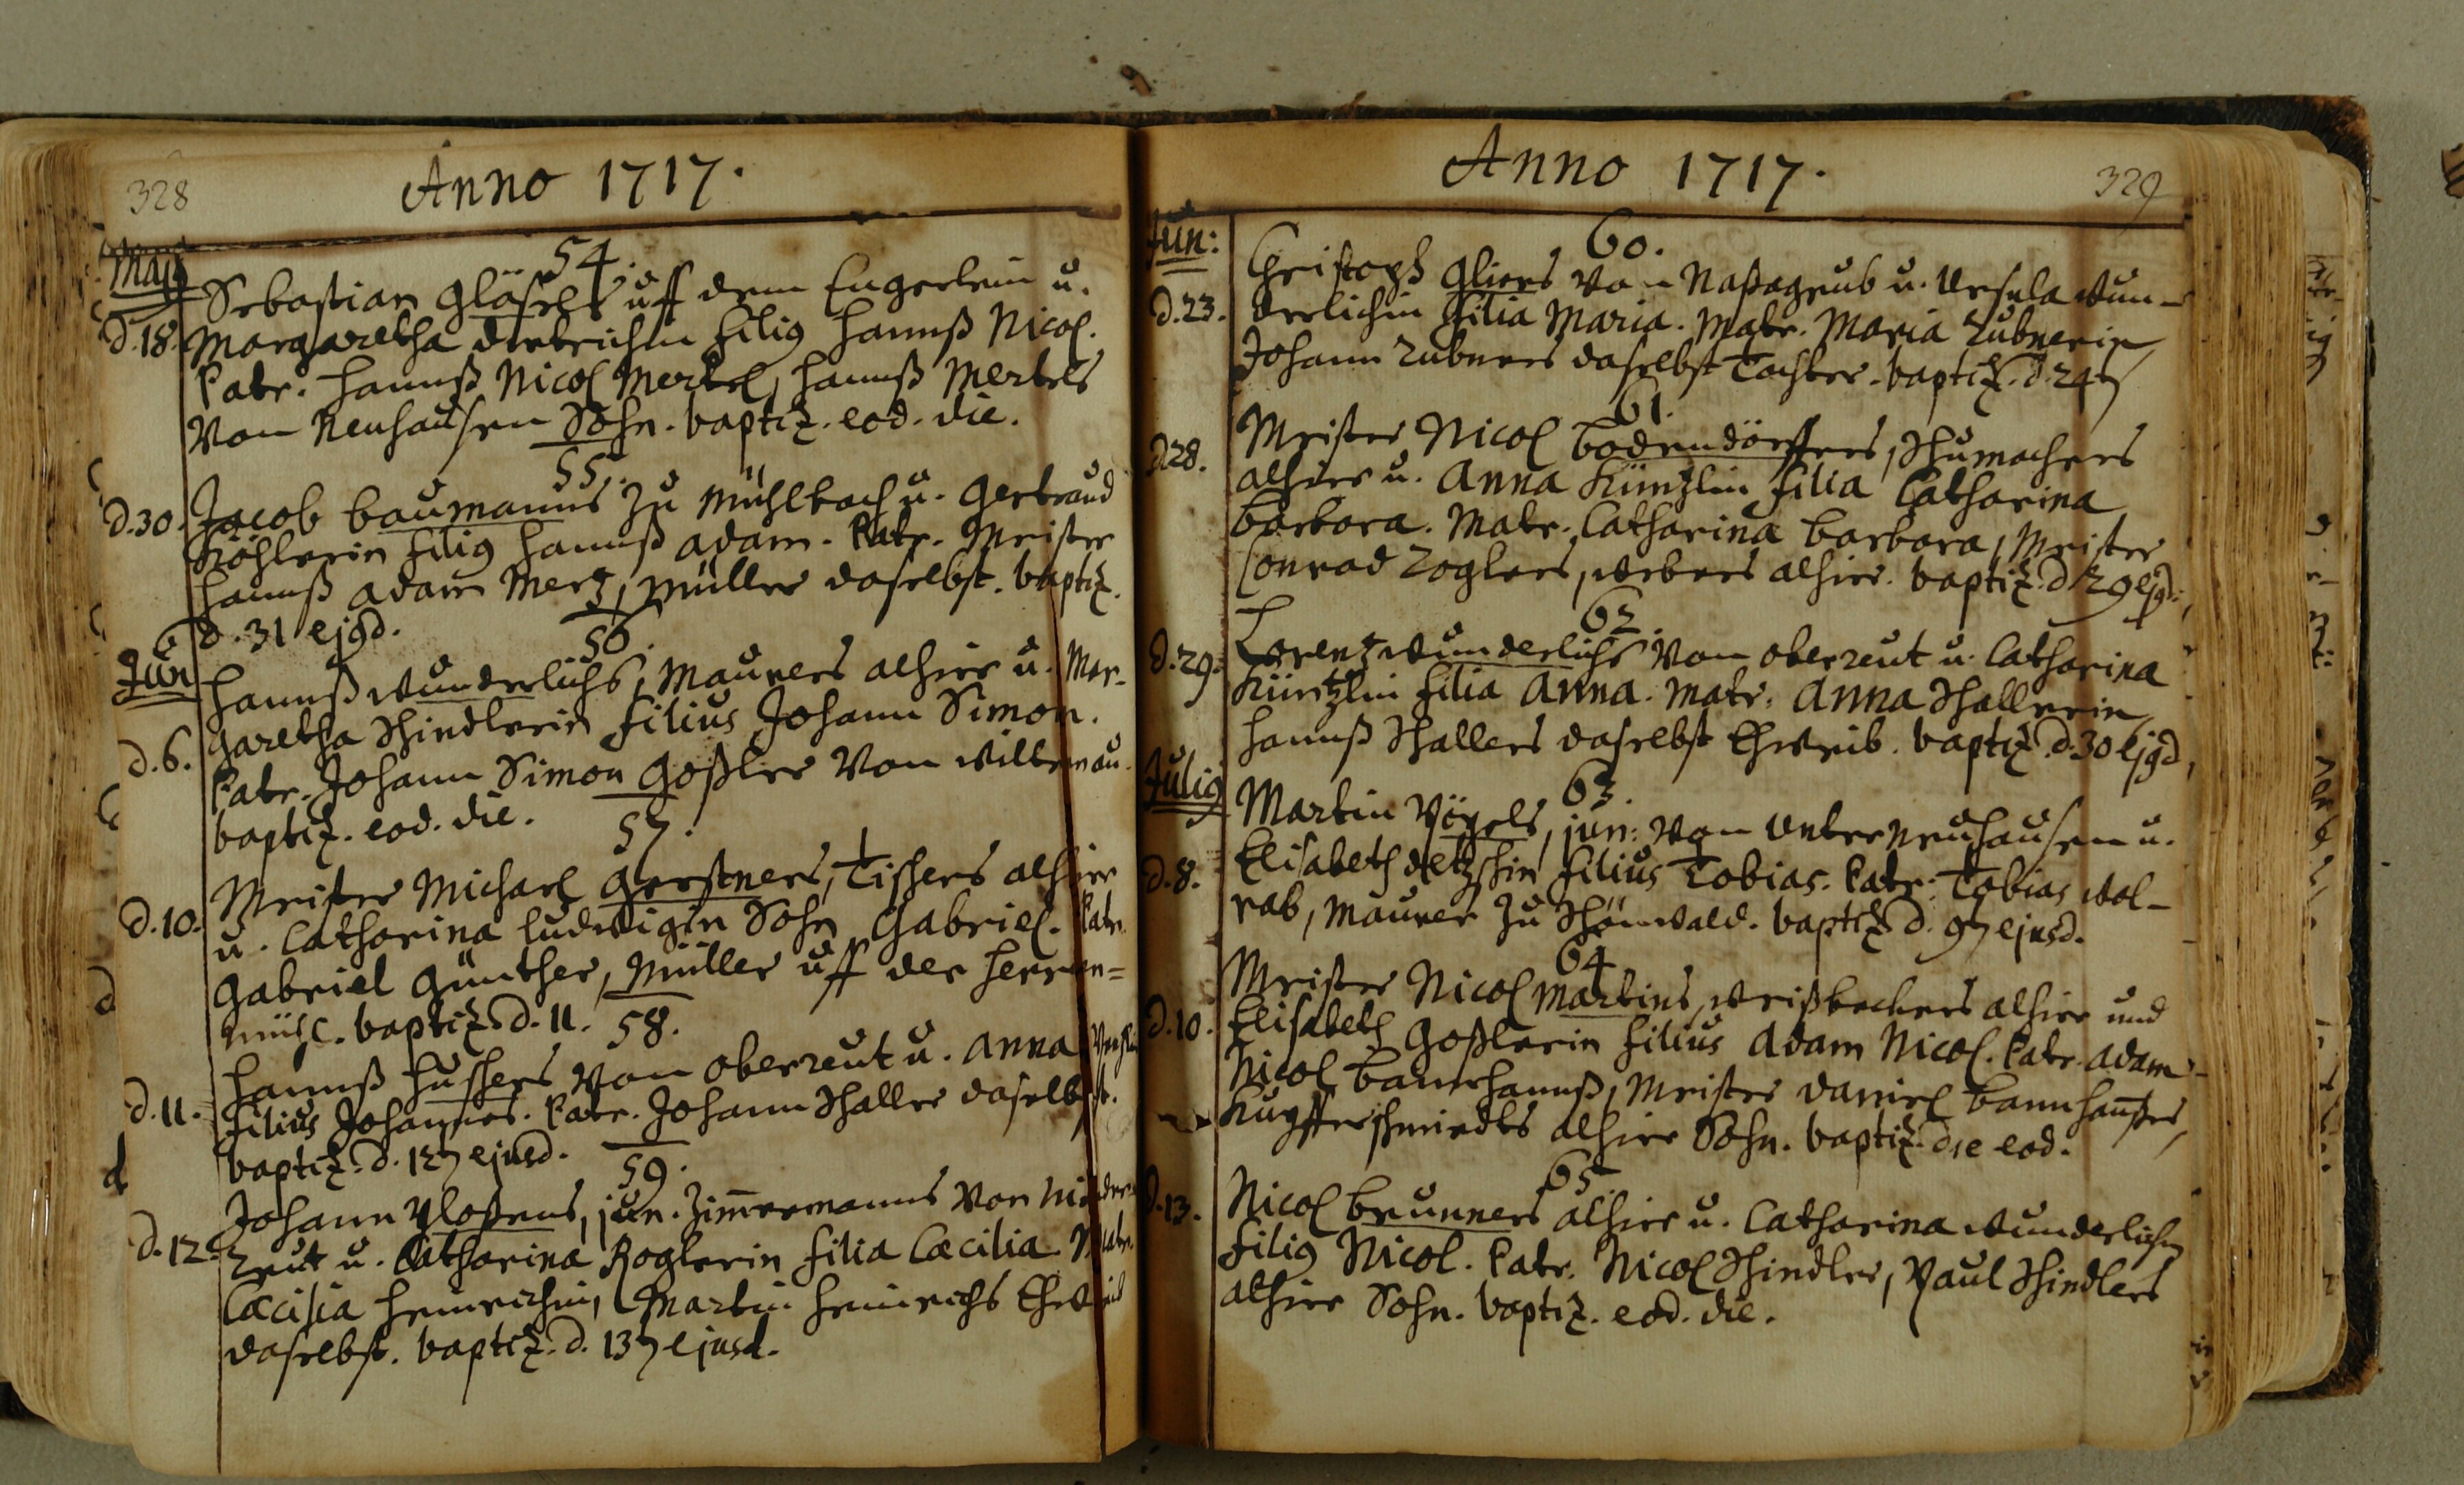 328
Anno 1717.
Maij
54.
Sebastian Gläsels uff dem Engerlein u.
d. 18. Margaretha Dietrichin filig Hannß Nicol.
Patr. Hannß Nicol Mertel, Hannß Mertels
von Neuhausen Sohn. baptiz. eod. die.
55.
d. 30. Jacob Baumanns zu Mühlbach u. Gertraud
Köhlerin filig Hannß Adam. Patr. Meister
Hannß Adam Mertz, Müller daselbst. baptiz.
d. 31 ejgd.
56.
Jun
Hannß Wunderlichs, Maurers alhier u. Mar-
d. 6. garetha Schindlerin filius Johann Simon.
Patr. Johann Simon Goßler von Wittenau.
baptiz. eod. die.
57.
Meister Michael Gerstners, Tischers alhier
d. 10. u. Catharina Ludwigin Sohn Gabriel. Patr.
Gabriel Günther, Müller uff der Herren-
mühl. baptiz. d. 11.
58.
Hannß Hussers von Oberreut u. Anna
d. 11. filius Johannes. Patr. Johann Schaller daselbst.
baptiz. d. 12 ejusd.
59.
Johann Ploßens, jun. Zim̄ermanns von Nieder
d. 12. reut u. Catharina Roglerin filia Cæcilia. Matr.
Cæcilia Heinrichin, Martin Heinrichs Ehweib
daselbst. baptiz. d. 13 ejusd.
329
Anno 1717.
Jun:
60.
Christoph Gliers von Naßagrub u. Ursula Wun-
d. 23. derlichin filia Maria. Matr. Maria Zubnerin,
Johann Zubners daselbst Tochter. baptiz. d. 24
61.
d. 28. Meister Nicol Bodendörffers, Schumachers
alhier u. Anna Küntzlin filia Catharina
Barbara. Matr. Catharina Barbara, Meister
Conrad Zoglers, Webers alhier. baptiz. d. 29 ejgd.
62.
d. 29. Lorentz Wunderlichs von Oberreut u. Catharina
Küntzlin filia Anna. Matr. Anna Schallerin,
Hannß Schallers daselbst Ehweib. baptiz. d. 30 ejgd,
Julig
63.
Martin Vögels, jun: von Unter Neuhausen u.
d. 8. Elisabeth filius Tobias. Patr. Tobias Wol-
rab, Maurer zu Schönwald. baptiz. d. 9 ejusd.
64
Meister Nicol Martins, Weißbeckers alhier und
d. 10. Elisabeth Goßlerin filius Adam Nicol. Patr. Adam
Nicol Bannhannß, Meister Daniel Bannhanßes,
Kupfferschmiedts alhier Sohn. baptiz. die eod.
65.
d. 13. Nicol Brunners alhier u. Catharina Wunderlichin
filig Nicol. Patr. Nicol Schindler, Paul Schindlers
alhier Sohn. baptiz. eod. die.